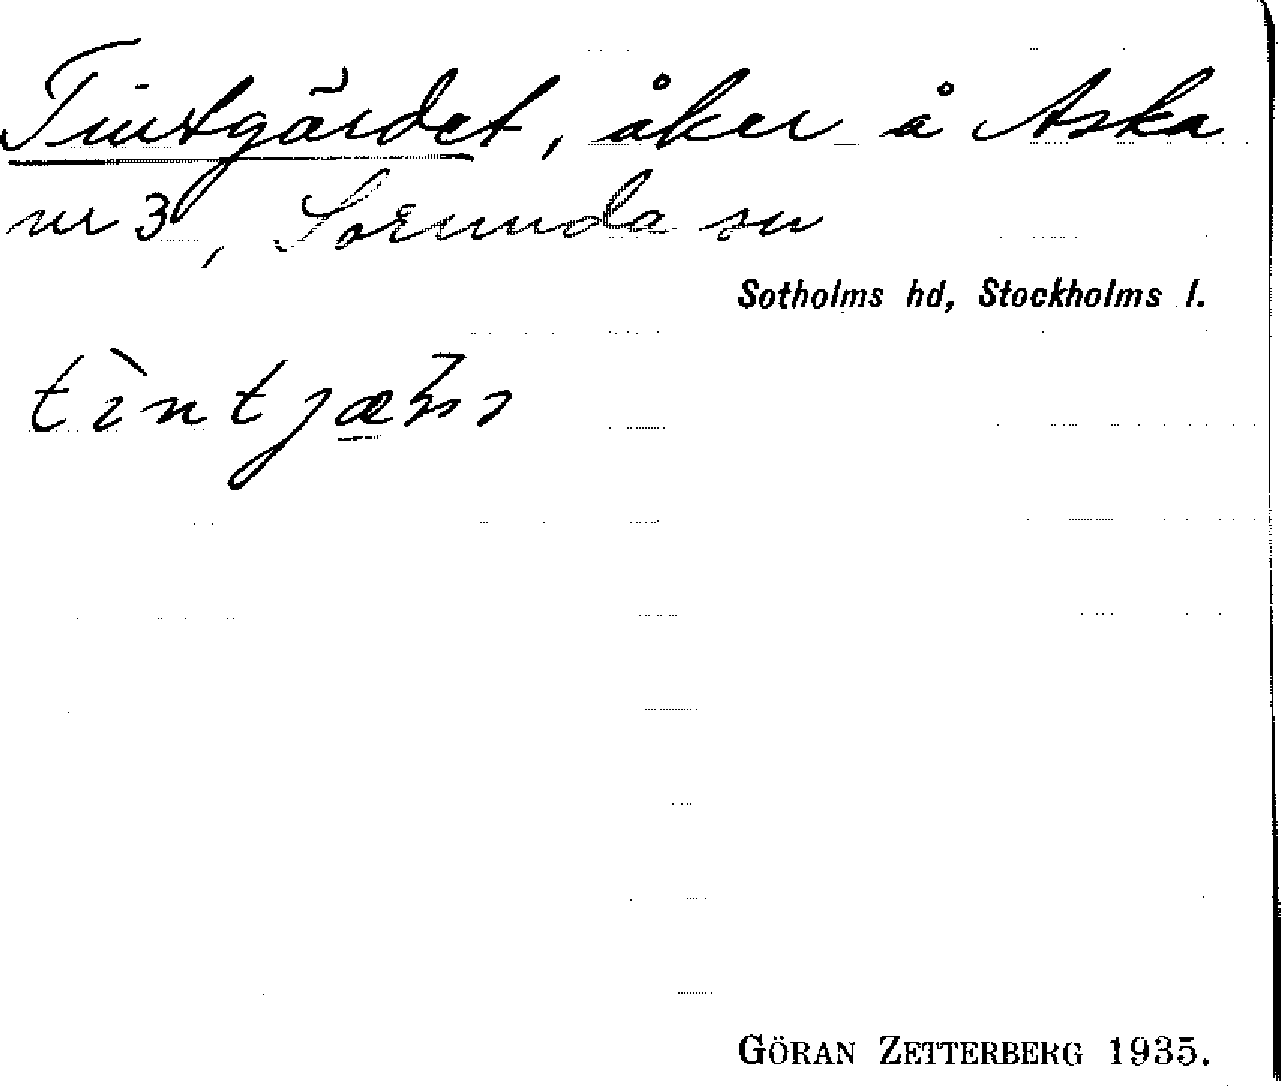 Tintgärdet, åker å Aska
nr 3, Sorunda sn
Sotholms hd, Stockholms l.
GÖRAN ZETTERBERG 1935.